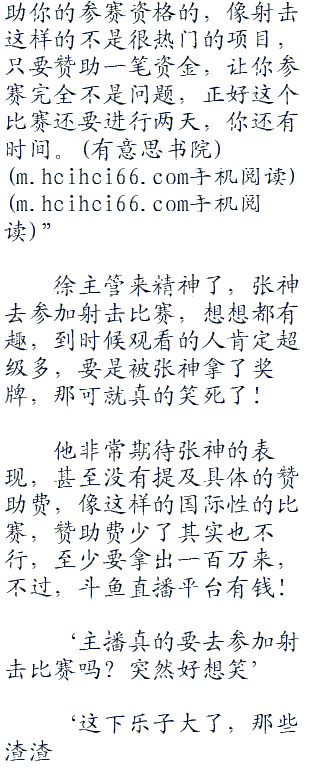 助你的参赛资格的，像射击
这样的不是很热门的项目，
只要赞助一笔资金，让你参
赛完全不是问题，正好这个
比赛还要进行两天，你还有
时间。(有意思书院)
(m.hcihci66.com手机阅读)
(m.hcihci66.com手机阅
读)”
徐主管来精神了，张神
去参加射击比赛，想想都有
趣，到时候观看的人肯定超
级多，要是被张神拿了奖
牌，那可就真的笑死了！
他非常期待张神的表
现，甚至没有提及具体的赞
助费，像这样的国际性的比
赛，赞助费少了其实也不
行，至少要拿出一百万来，
不过，斗鱼直播平台有钱！
‘主播真的要去参加射
击比赛吗？突然好想笑’
‘这下乐子大了，那些
渣渣